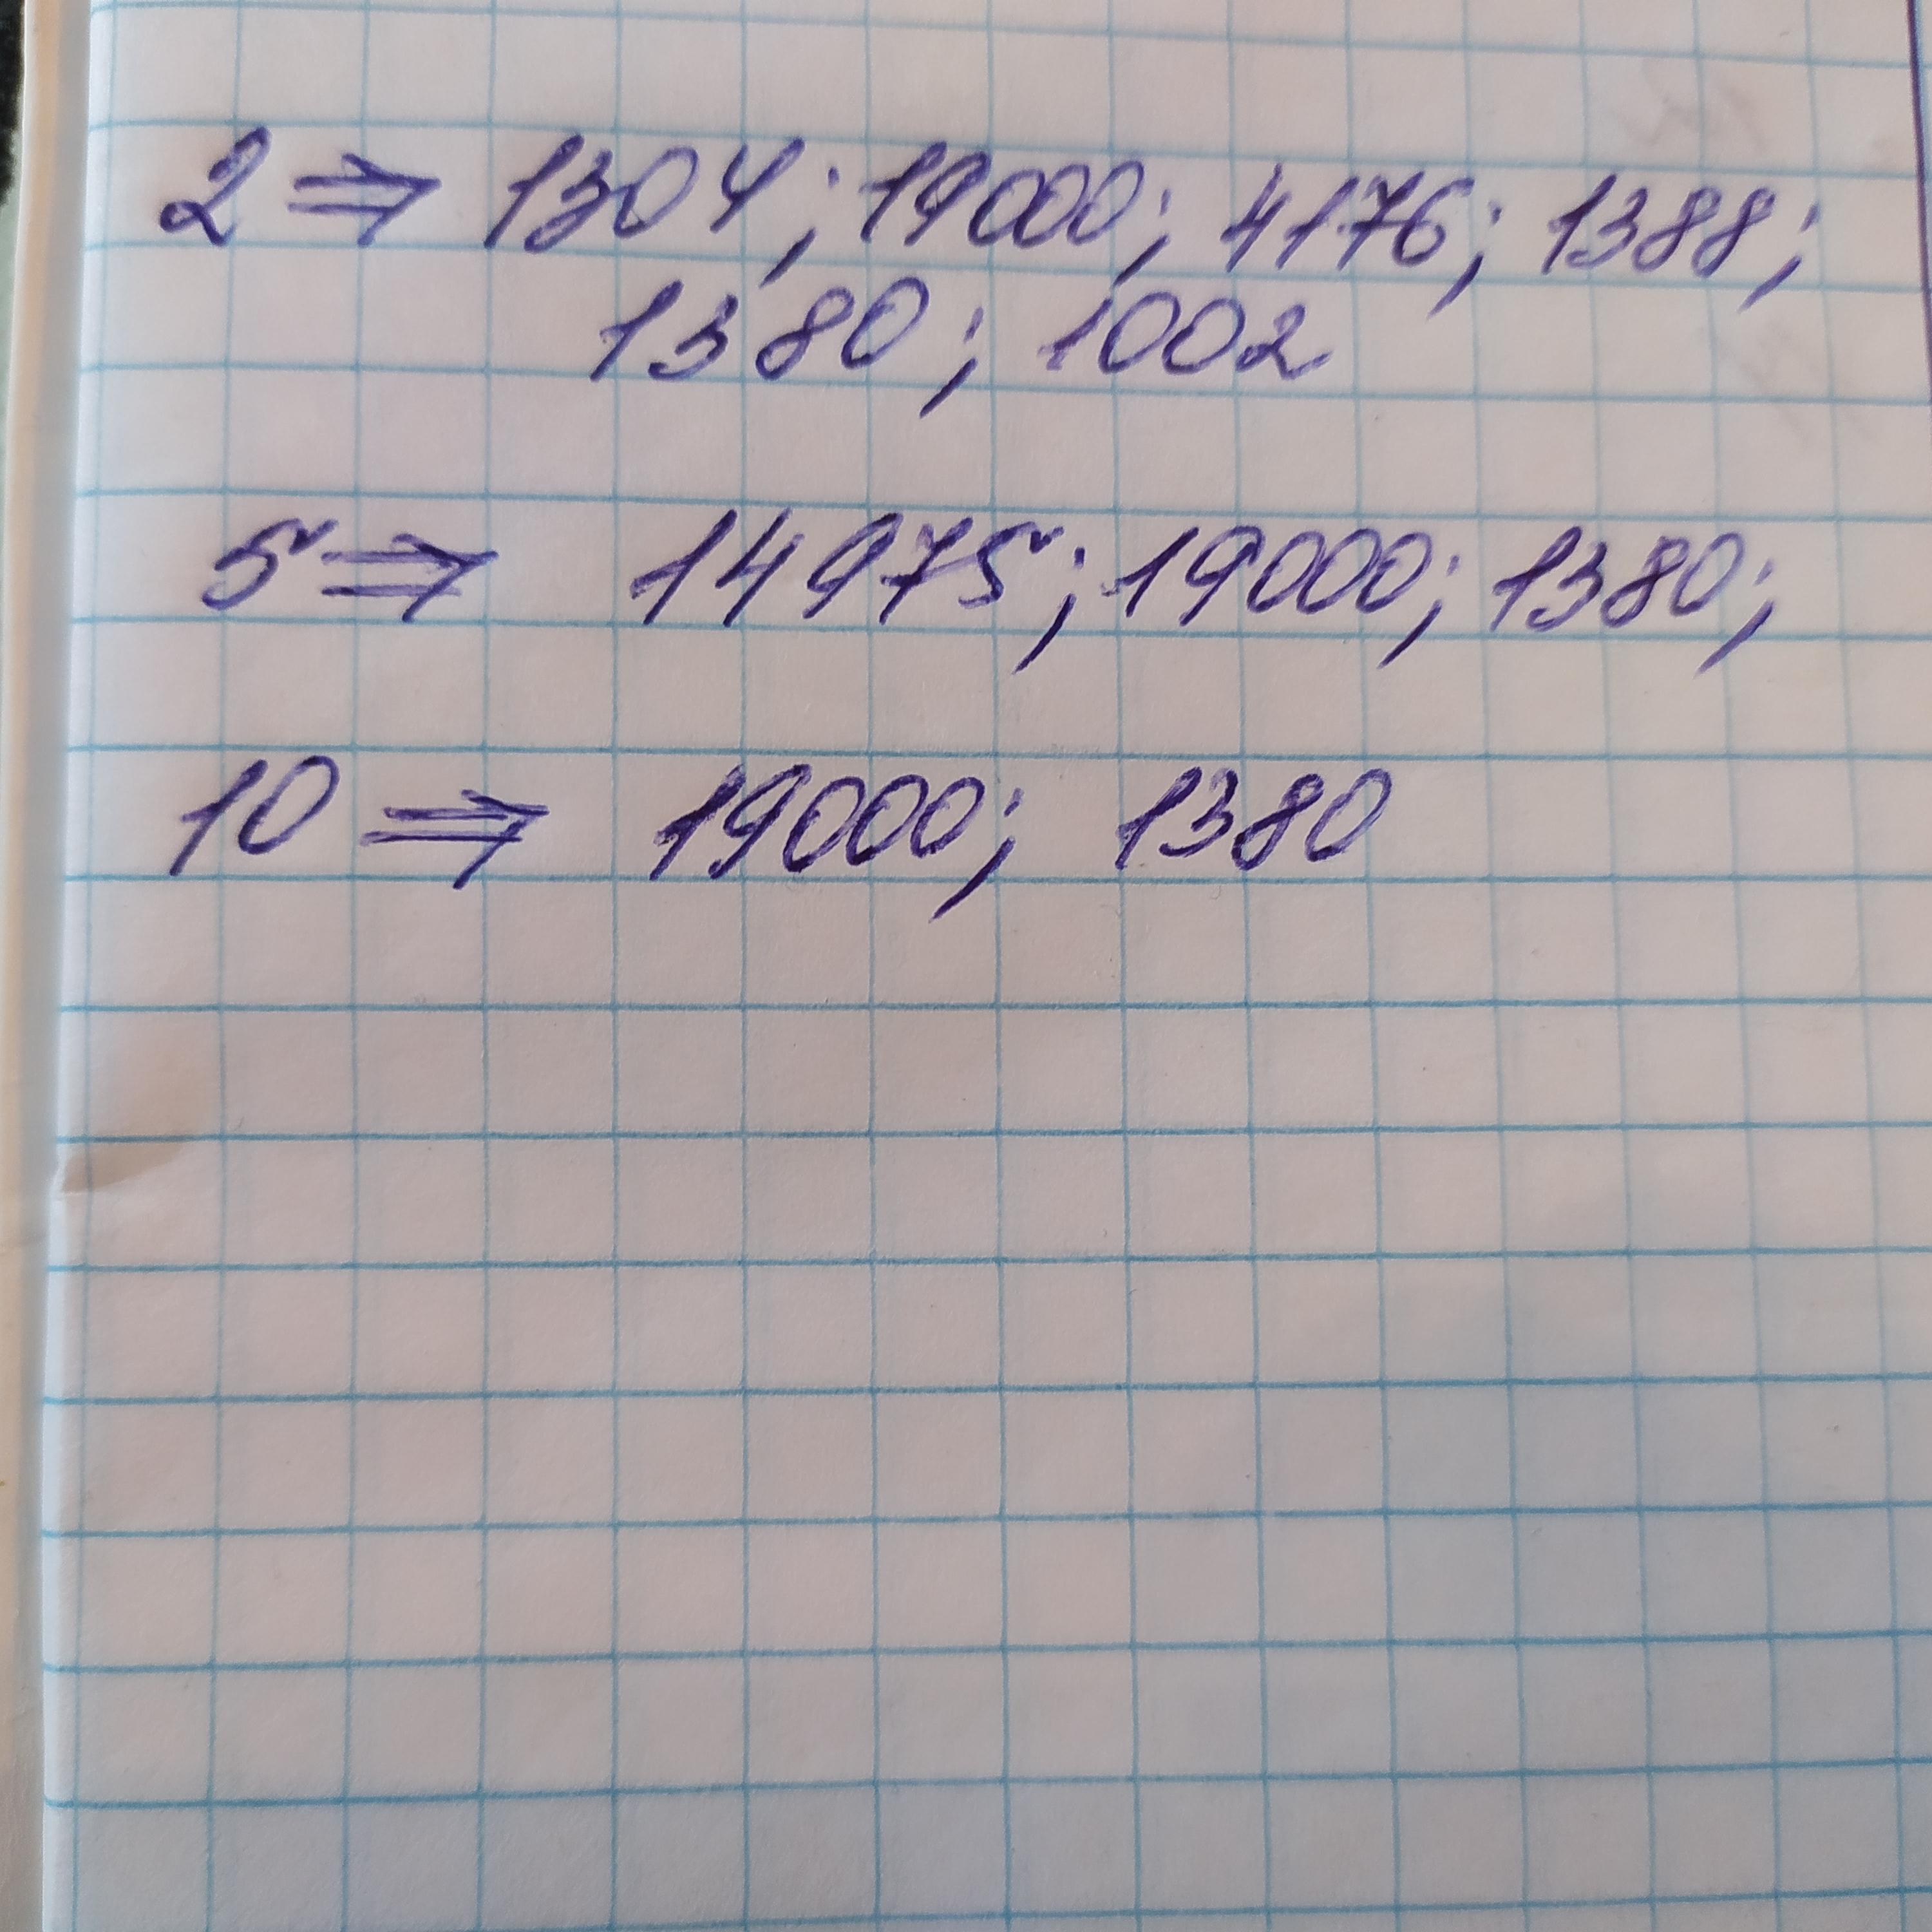 2 ⇒ 1304; 19000; 4176; 1388;
1380; 1002
5 ⇒ 14975; 19000; 1380;
10 ⇒ 19000; 1380